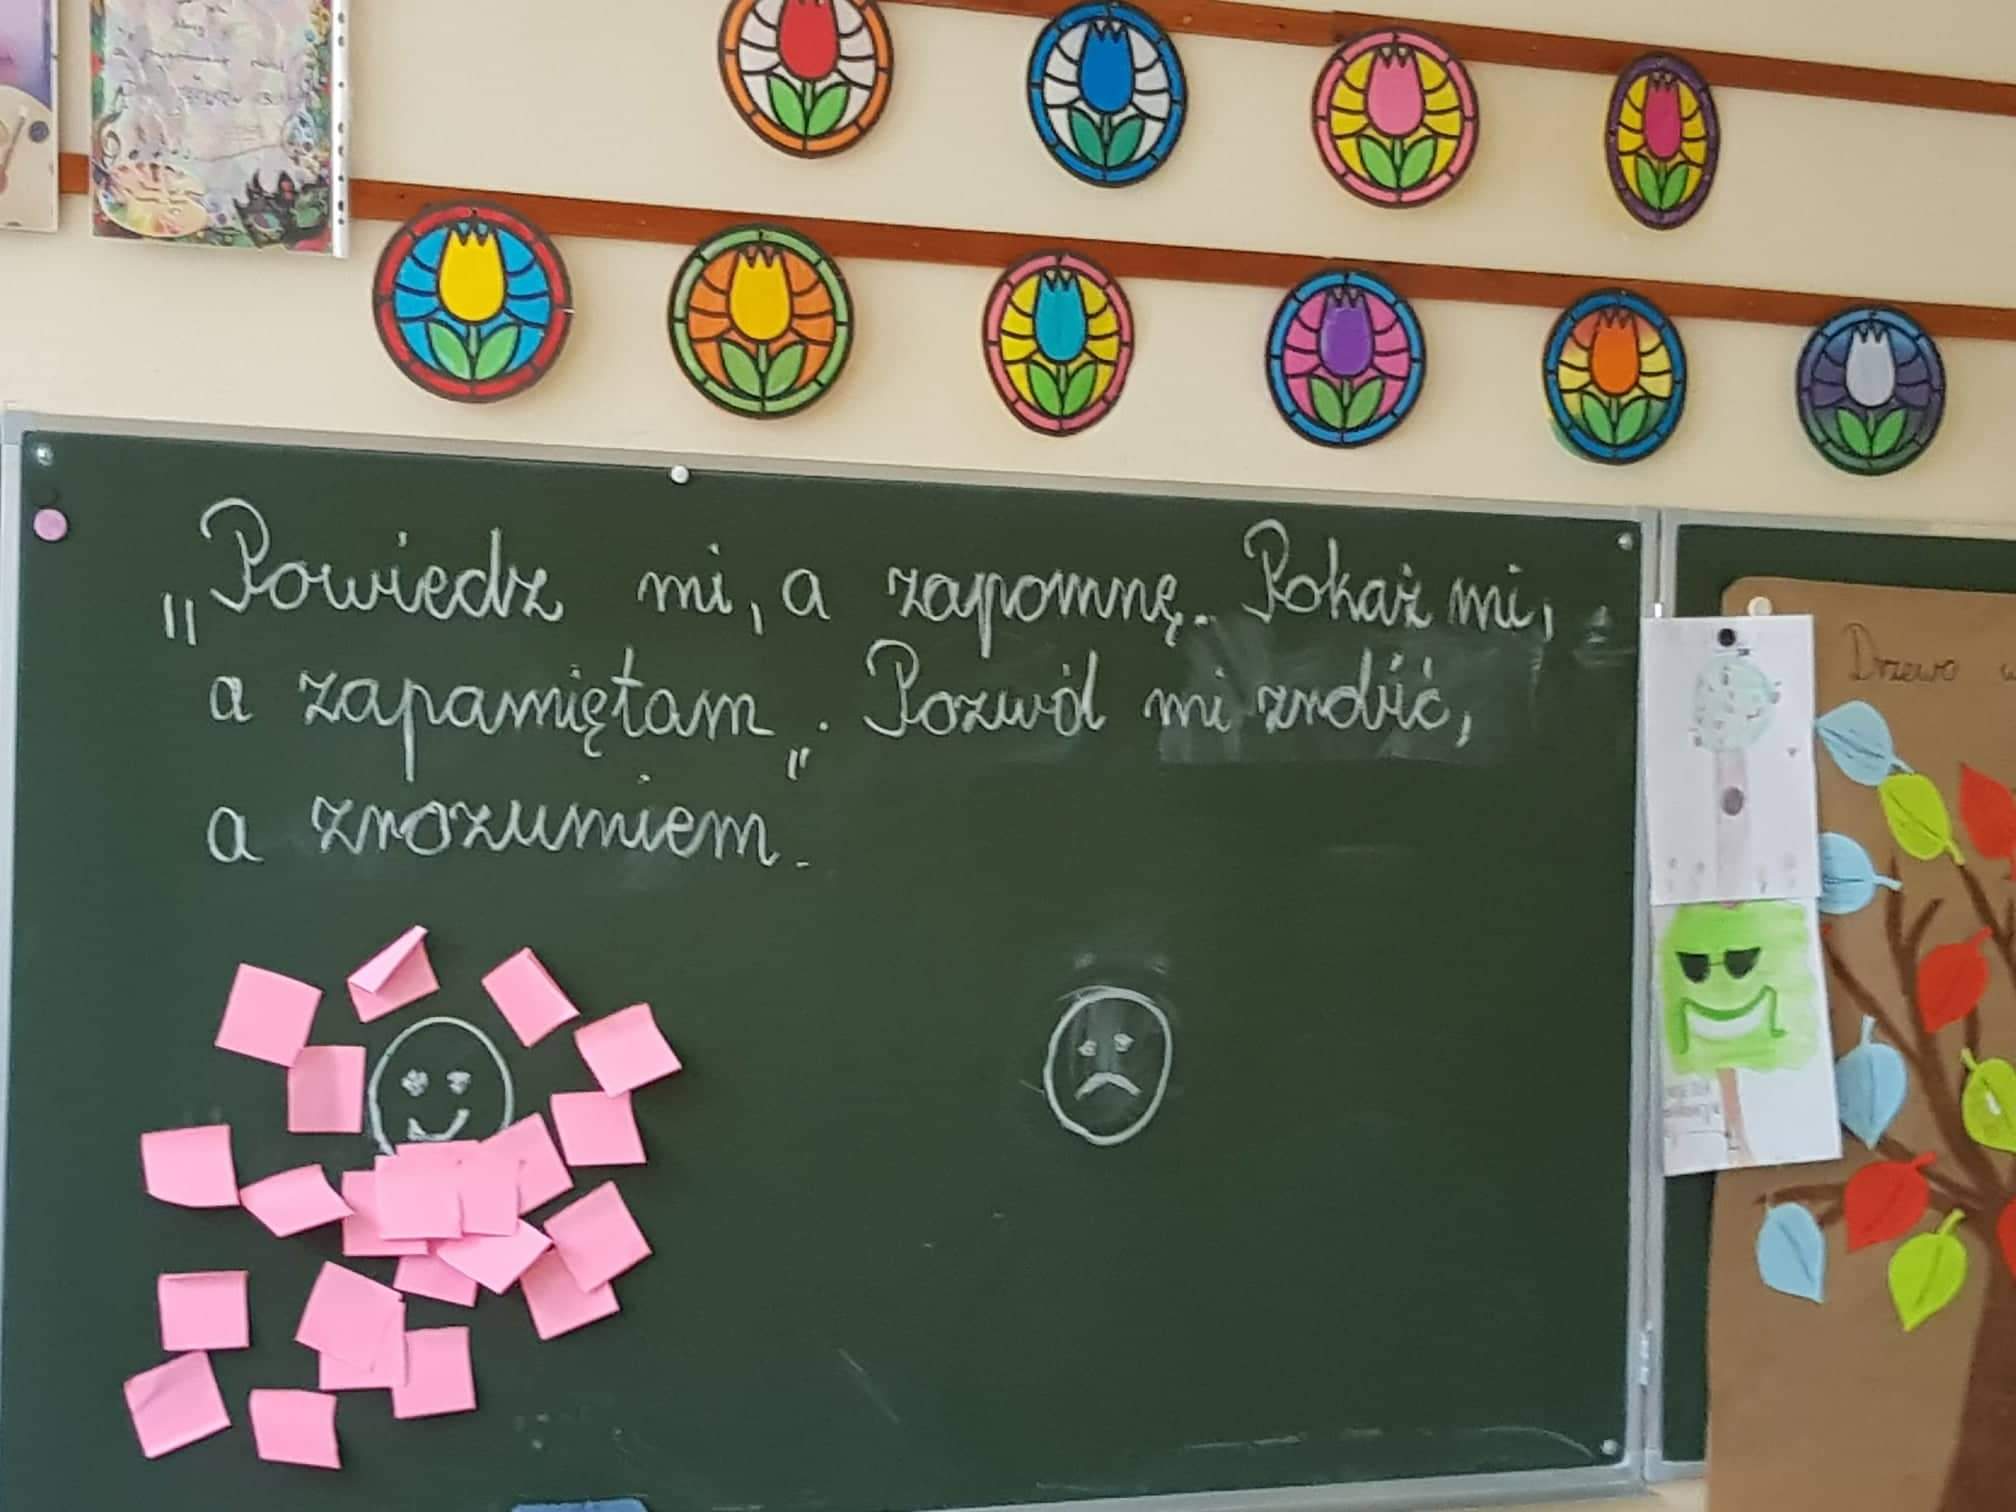 „Powiedz mi, a zapomnę. Pokaż mi,
a zapamiętam„. Pozwól mi zrobić,
a zrozumiem.
Drzewo